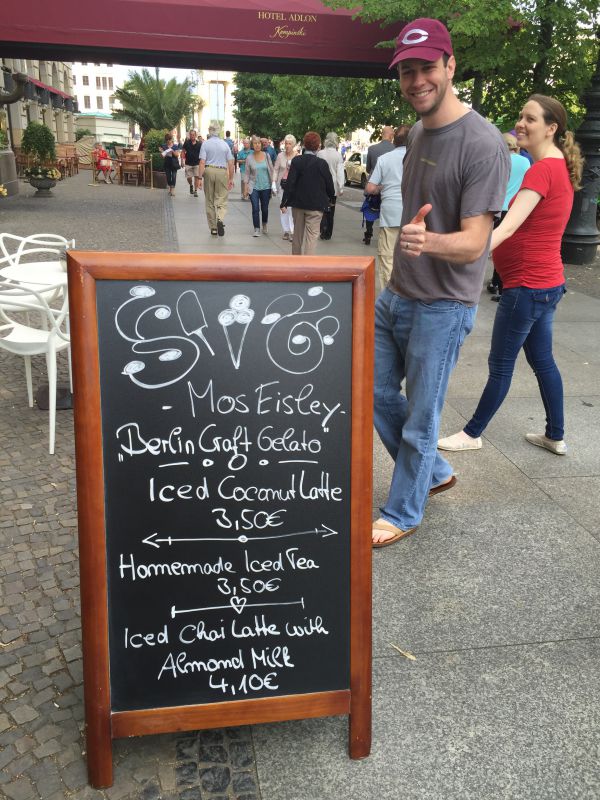 HOTEL ADLON
Kempinski
C
S I V G
- Mos Eisley -
„Berlin Craft Gelato"
Iced Coconut Latte
3,50€
Homemade Iced Tea
3,50€
Iced Chai Latte with
Almond Milk
4,10€